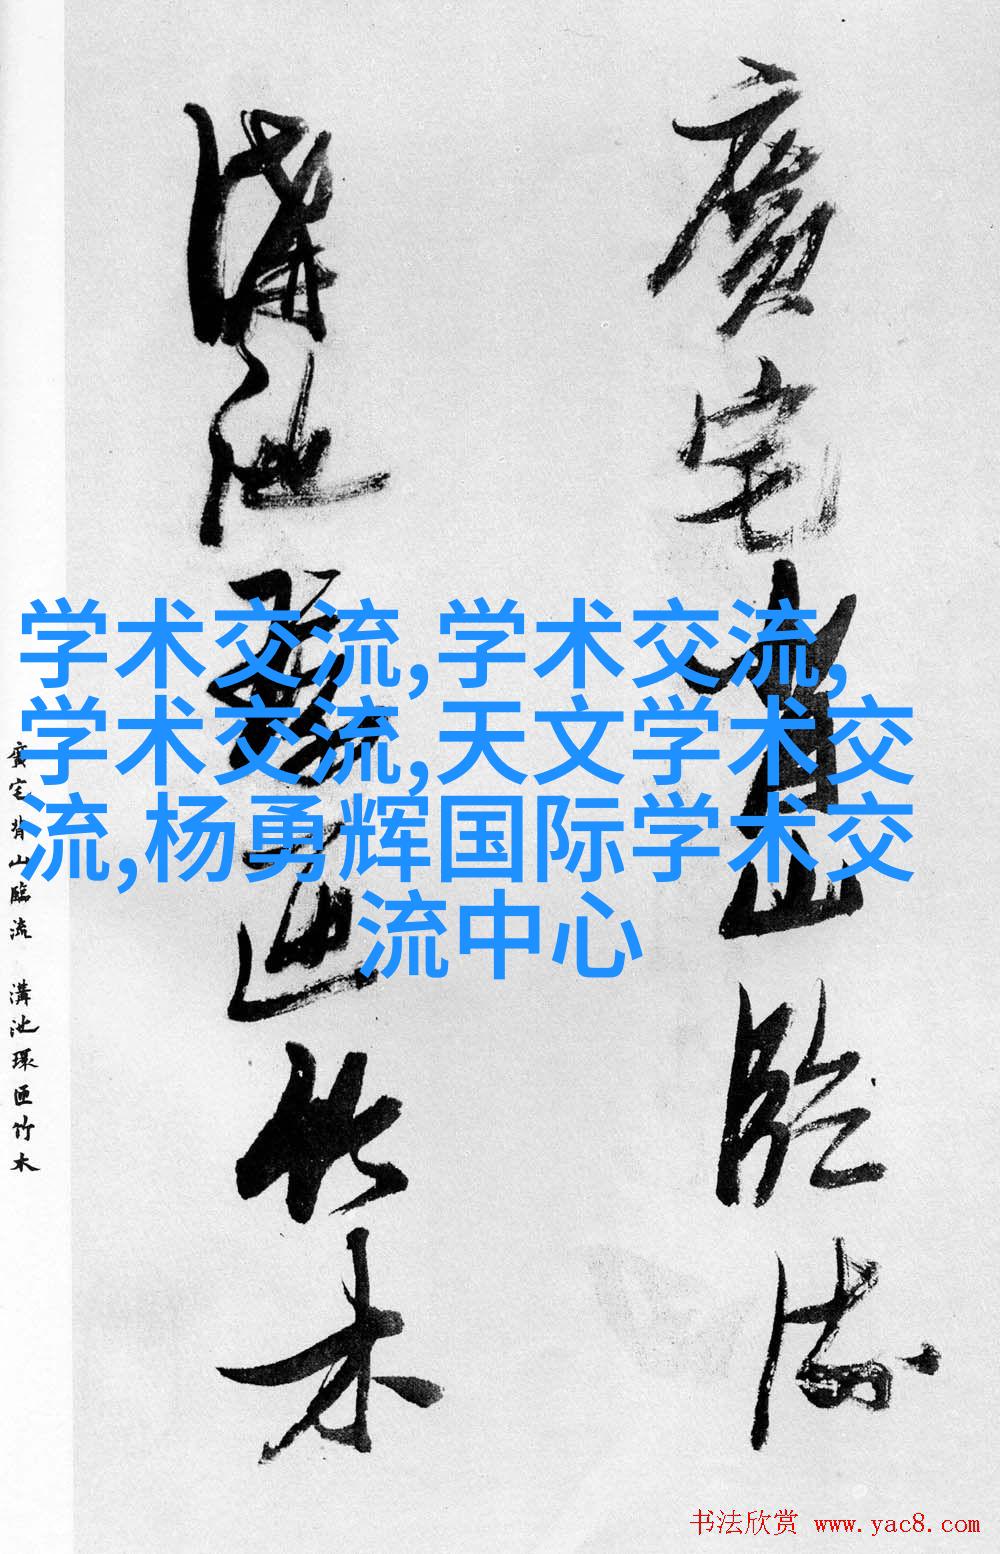 廣宅背山臨流
溝池環匝竹木
学术交流,学术交流,
学术交流,天文学术交
流,杨勇辉国际学术交
流中心
廣宅背山臨流 溝池環匝竹木
书法欣赏 www.yac8.com